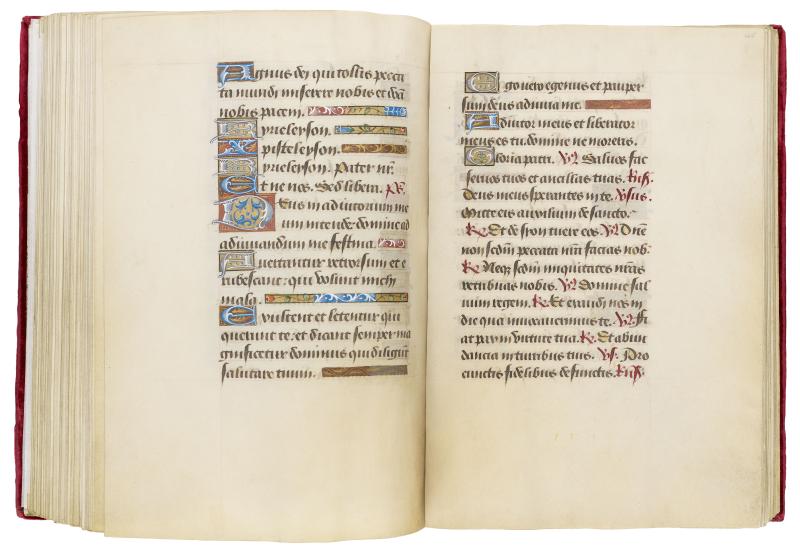 Agnus dei qui tollis pecca
ta mundi miserere nobis et dõa
nobis pacem.
Kyreleyson.
Xpisteleyson.
Kyreleyson. Pater nr̃.
Et ne nos. Sed libera. ps̃.
Deus in adiutorium me
um intende: domine ad
adiuuandum me festina.
Auertantur retrorsum et e
rubescant: qui volunt michi
mala.
Exultent et letentur qui
querunt te: et dicant semper ma
gnificetur dominus qui diligũt
salutare tuum.
Ego vero egenus et pauper
sum deus adiuua me.
Adiutor meus et liberator
meus es tu: domine ne moreris.
Gloria patri. Saluos fac
seruos tuos et ancillas tuas.
Deus meus sperantes in te.
Mitte eis auxilium de sancto.
Et de syon tuere eos. Dñe
non scdm̃ peccata nrã facias nob.
Neqʒ scdm̃ iniquitates nrãs
retribuas nobis. Domine sal
uum regem. Et exaudi nos in
die qua inuocauerimus te. Fi
at pax in virtute tua. Et abun
dancia in turribus tuis. Pro
cunctis fidelibus defunctis.